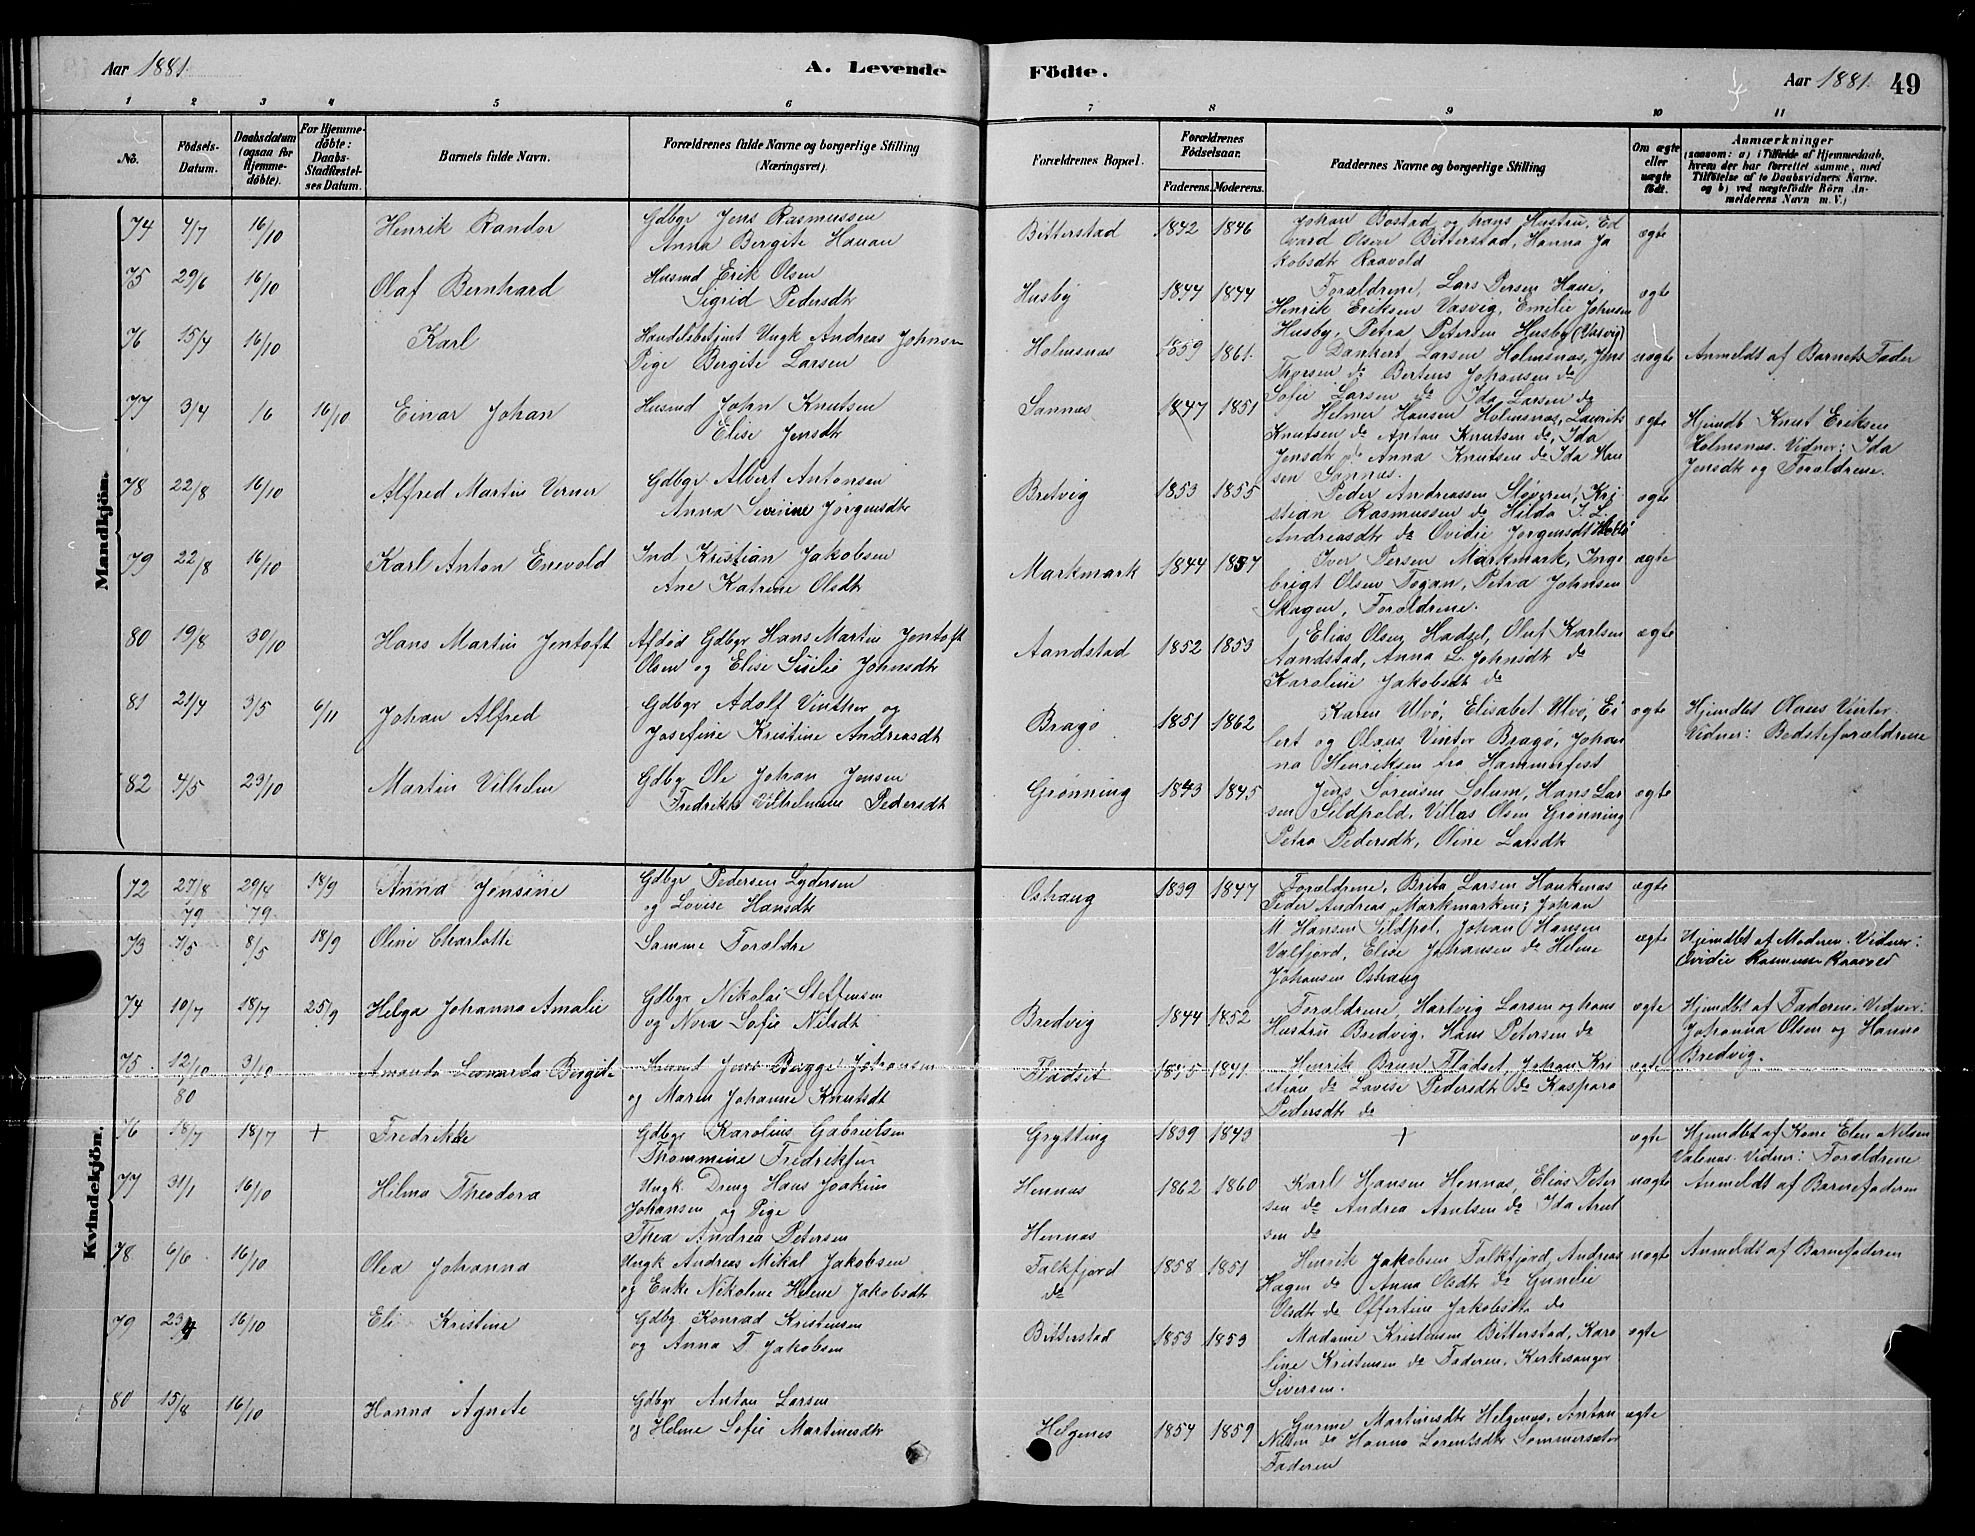 Aar 1881.
A. Levende Födte.
Aar 1881.
49
1 2 3 4 5 6 7 8 9 10 11
No.
Födsels-Datum.
Daabsdatum (ogsaa for Hjemme-döbte).
For Hjemme-döbte: Daabs-Stadfæstel-ses Datum.
Barnets fulde Navn.
Forældrenes fulde Navne og borgerlige Stilling (Næringsvei).
Forældrenes Bopæl.
Forældrenes Födselsaar.
Faderens. Moderens.
Faddernes Navne og borgerlige Stilling
Om ægte eller uægte födt.
Anmærkninger
(saasom: a) i Tilfælde af Hjemmedaab,
hvem der har forrettet samme, med
Tilföielse af to Daabsvidners Navne.
og b) ved uægtefödte Börn An-
melderens Navn m. V.)
Mandkjön.
74 4/7 16/10 Henrik Randor Gdbgr Jens Rasmussen
Anna Bergite Havan
Bitterstad 1842 1846 Johan Bostad og hans Hustru, Ed
vard Olsen Bitterstad, Hanna Ja
kobsdtr Raavold
ægte
75 29/6 16/10 Olaf Bernhard Husmd Erik Olsen
Sigrid Pedersdtr
Husby 1844 1844 Forældrene, Lars Persen Haue,
Henrik Eriksen Vasvig, Emilie Johnsen
Husby, Petra Petersen Husby (Vasvig)
ægte
76 15/7 16/10 Karl Handelsbetjent Ungk Andreas Johnsen
Pige Bergite Larsen
Holmsnæs 1859 1861. Dankert Larsen Holmsnæs, Jens
Thorsen do Bertens Johansen do
Sofie Larsen do Ida Larsen do
uægte Anmeldt af Barnets Fader
77 3/4 16/10 Einar Johan Husmd John Knutsen
Elise Jensdtr
Sannæs 1847 1851 Helmer Hansen Holmsnæs, Laurits
Knutsen do Anton Knutsen do, Ida
Jensdtr do Anna Knutsen do Ida Han
sen Sannæs.
ægte Hjemdbt Knut Eriksen
Holmsnæs. Vidner: Ida
Jensdtr og Forældrene.
78 22/8 16/10 Alfred Martin Verner Gdbgr Albert Antonsen
Anna Severine Jørgensdtr
Bretvig 1853 1855 Peder Andreassen Sløveren, Kri
stian Rasmussen do Hilda J. L.
Andreasdtr do Ovidie Jørgensdtr
ægte
79 22/8 16/10 Karl Anton Enevold Ind Kristian Jakobsen
Ane Katrine Olsdtr
Markmark 1844 1857 Iver Persen Markmark, Inge
brigt Olsen Togan, Petra Johnsen
Skagen, Forældrene.
ægte
80 19/8 30/10 Hans Martin Jentoft Afdød Gdbgr Hans Martin Jentoft
Olsen og Elise Sisilie Johnsdtr
Aandstad 1852 1853 Elias Olsen Hadsel, Oluf Karlsen
Aandstad, Anna L. Johnsdtr do
Karoline Jakobsdtr do
ægte
81 21/4 3/5 6/11 Johan Alfred Gdbgr Adolf Vinther og
Josefine Kristine Andreasdtr
Bragø 1851 1862 Karen Ulvø, Elisabet Ulvø, Ei
lert og Olaus Vinter Bragø, Johan
na Henriksen fra Hammerfest
ægte Hjemdbt Olaus Vinter
Vidner: Bedsteforældrene
82 4/5 23/10 Martin Vilhelm Gdbgr Ole Johan Jensen
Fredrikke Vilhelmine Pedersdtr
Grønning 1843 1845 Jens Sørensen Solum, Hans Lar
sen Sildpold, Villas Olsen Grønning
Petra Pedersdtr, Oline Larsdtr
ægte
Kvindekjön.
72 27/8 79 29/4 79 18/9 Anna Jensine Gdbgr Pedersen Lydersen
og Lovise Hansdtr
Oshaug 1839 1847 Forældrene, Brita Larsen Haukenæs
Peder Andreas Markmarken; Johan
M Hansen Sildpol, Johan Hansen
Valfjord, Elise Johansen do Helene
Johansen Oshaug
ægte
73 7/5 8/5 18/9 Oline Charlotte Samme Forældre
ægte Hjemdbt af Moderen. Vidner:
Ovidie Rasmussen Raavold
74 10/7 18/7 25/9 Helga Johanna Amalie Gdbgr Nikolai Steffensen
og Nora Sofie Nilsdtr
Bredvig 1844 1852 Forældrene, Hartvig Larsen og hans
Hustru Bredvig. Hans Petersen do
ægte Hjemdbt af Faderen. Vidner:
Johanna Olsen og Hanna
Bredvig.
75 12/10 80 3/10 Amanda Leonarda Bergite Husmd Jens Brygge Johansen
og Maren Johanne Knutsdtr
Fladset 1845 1841 Henrik Bruun Fladset, Johan Kri
stian do Lovise Pedersdtr do Kaspara
Pedersdtr do
ægte
76 18/7 18/7 + Fredrikke Gdbgr Karolius Gabrielsen
Thommine Fredriksen
Grytting 1839 1843 +
ægte Hjemdbt af Kone Elen Nilsen
Valenæs. Vidner: Forældrene
77 31/1 16/10 Hilma Theodora Ungk. Dreng Hans Joakim
Johansen og Pige
Thea Andrea Petersen
Hennæs
Hennæs
1862 1860 Karl Hansen Hennæs, Elias Peter
sen do Andrea Arntsen do Ida Arnt
sen do
uægte Anmeldt af Barnefaderen
78 6/6 16/10 Olea Johanna Ungk Andreas Mikal Jakobsen
og Enke Nikoline Helene Jakobsdtr
Falkfjord
do
1858 1851 Henrik Jakobsen Falkfjord, Andreas
Hagen do Anna Olsdtr do Gunelie
Olsdtr do Offertine Jakobsdtr do
uægte Anmeldt af Barnefaderen
79 23/4 16/10 Eli Kristine Gdbgr Konrad Kristensen
og Anna T Jakobsen
Bitterstad 1853 1853 Madame Kristensen Bitterstad, Karo
line Kristensen do Faderen, Kirkesanger
Siversen.
ægte
80 15/8 16/10 Hanna Agnete Gdbgr Anton Larsen
og Helene Sofie Martinsdtr
Helgenes 1854 1859 Gurine Martinsdtr Helgenæs, Anton
Nilsen do Hanna Lorentsdtr Sommersæter
Faderen
ægte